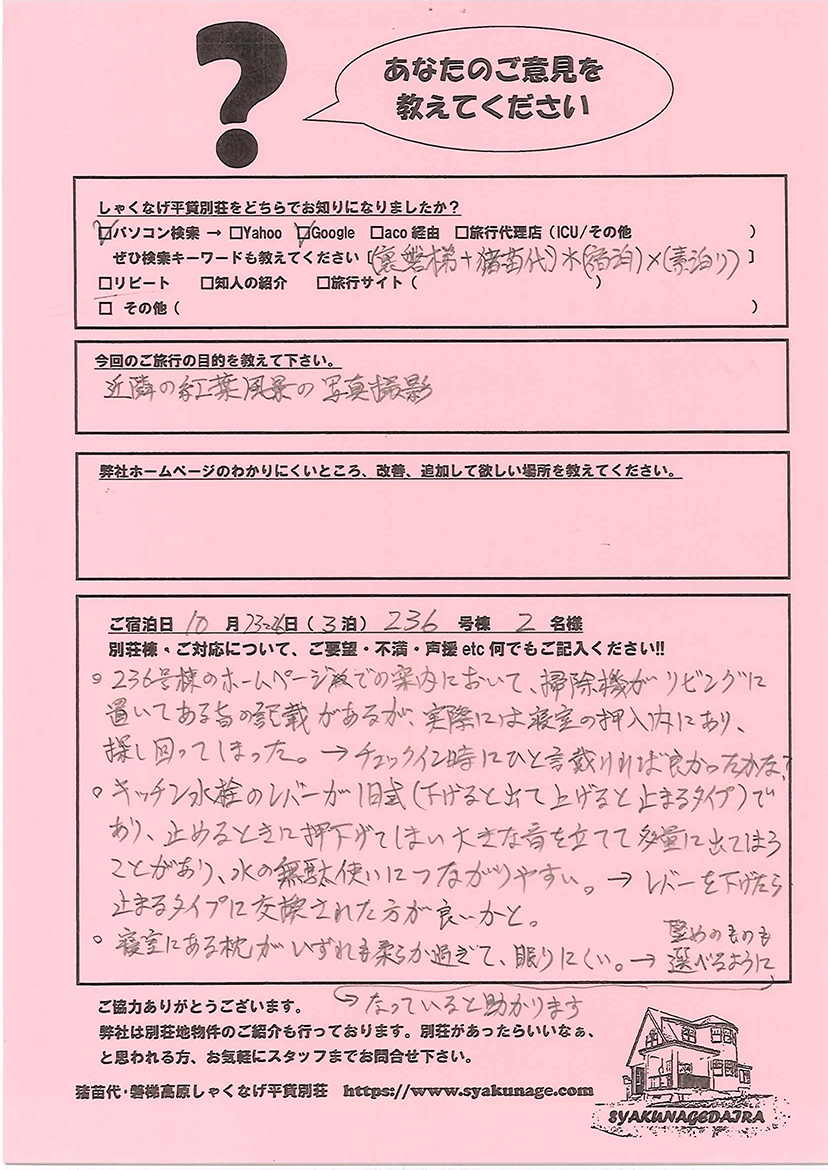 ?
あなたのご意見を
教えてください
しゃくなげ平貸別荘をどちらでお知りになりましたか？
☑パソコン検索 → □Yahoo ☑Google □aco 経由 □旅行代理店（ICU/その他 ）
ぜひ検索キーワードも教えてください［(裏磐梯+猪苗代) (宿泊)×(素泊り)］
□リピート □知人の紹介 □旅行サイト（ ）
□ その他（ ）
今回のご旅行の目的を教えて下さい。
近隣の紅葉風景の写真撮影
弊社ホームページのわかりにくいところ、改善、追加して欲しい場所を教えてください。
ご宿泊日 10 月 23-26日（3泊） 236 号棟 2 名様
別荘棟・ご対応について、ご要望・不満・声援 etc 何でもご記入ください!!
○ 236号棟のホームページ での案内において、掃除機がリビングに
置いてある旨の記載があるが、実際には寝室の押入内にあり、
探し回ってしまった。→ チェックイン時にひと言戴ければ良かったかな?
○ キッチン水栓のレバーが旧式(下げると出て上げると止まるタイプ)で
あり、止めるときに押下げてしまい大きな音を立てて多量に出てしまう
ことがあり、水の無駄使いにつながりやすい。→ レバーを下げたら
止まるタイプに交換された方が良いかと。
○ 寝室にある枕がいずれも柔らか過ぎて、眠りにくい。→ 堅めのものも
選べるように
↪ なっていると助かります
ご協力ありがとうございます。
弊社は別荘地物件のご紹介も行っております。別荘があったらいいなぁ、
と思われる方、お気軽にスタッフまでお問合せ下さい。
猪苗代・磐梯高原しゃくなげ平貸別荘 https://www.syakunage.com
SYAKUNAGEDAIRA